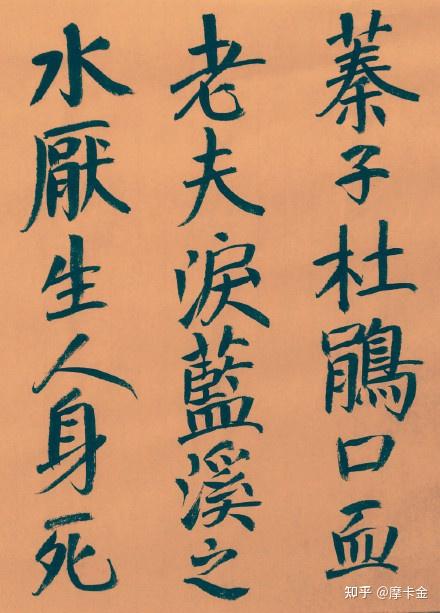 蓁子杜鵑口血
老夫淚藍溪之
水厭生人身死
知乎 @摩卡金